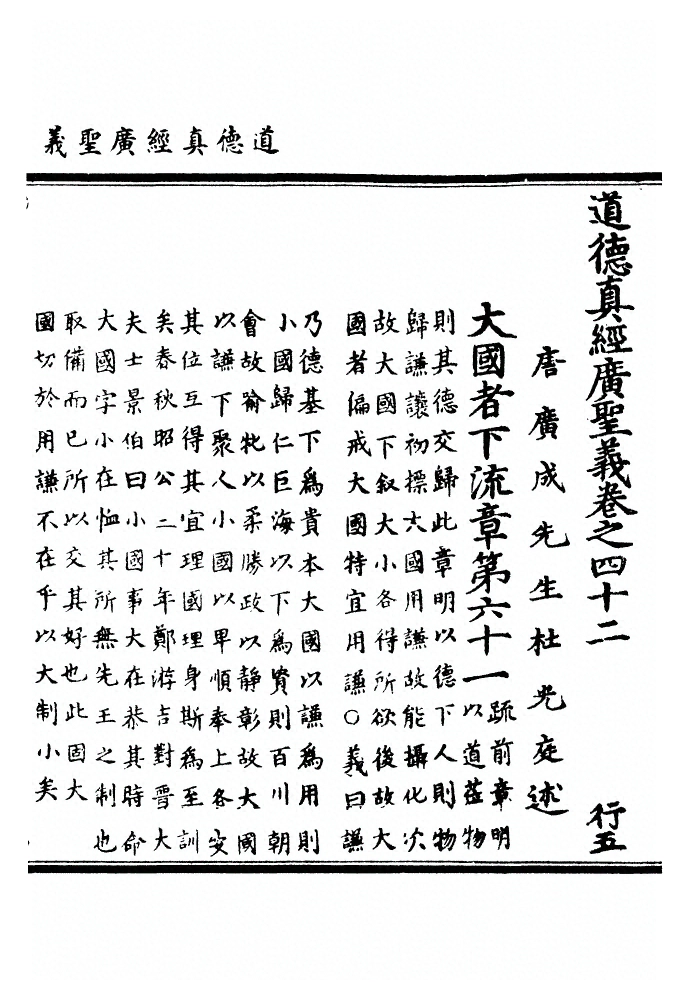 道德真經廣聖義
道德真經廣聖義卷之四十二 行五
唐廣成先生杜光庭述
大國者下流章第六十一 疏前章明
以道莅物
則其德交歸此章明以德下人則物
歸謙讓初標大國用謙故能攝化次
故大國下叙大小各得所欲後故大
國者偏戒大國特宜用謙○義曰謙
乃德基下爲貴本大國以謙爲用則
小國歸仁巨海以下爲貴則百川朝
會故喻牝以柔勝政以静彰故大國
以謙下聚人小國以卑順奉上各安
其位互得其宜理國理身斯爲至訓
矣春秋昭公二十年鄭游吉對晋大
夫士景伯曰小國事大在恭其時命
大國字小在恤其所無先王之制也
取備而已所以交其好也此固大
國切於用謙不在乎以大制小矣